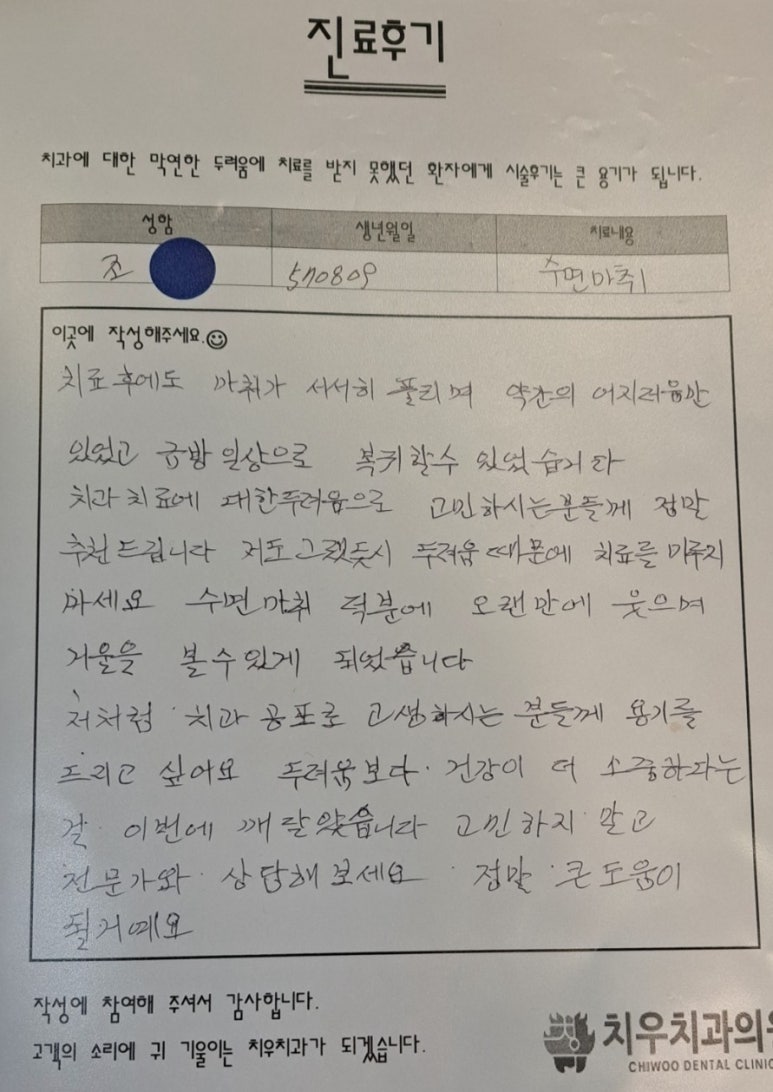 진료후기
치과에 대한 막연한 두려움에 치료를 받지 못했던 환자에게 시술후기는 큰 용기가 됩니다.
성함 생년월일 치료내용
조 570809 수면마취
이곳에 작성해주세요.
치료후에도 마취가 서서히 풀리며 약간의 어지러움만
있었고 금방 일상으로 복귀할수 있었습니다
치과치료에 대한두려움으로 고민하시는분들께 정말
추천드립니다 저도 그랬듯시 두려움 때문에 치료를 미루지
마세요 수면마취 덕분에 오랜만에 웃으며
거울을 볼수있게 되었습니다
저처럼 치과 공포로 고생하시는 분들께 용기를
드리고 싶어요 두려움보다 건강이 더 소중하다는
걸 이번에 깨달았습니다 고민하지 말고
전문가와 상담해보세요 정말 큰도움이
될거예요
작성에 참여해 주셔서 감사합니다.
고객의 소리에 귀 기울이는 치우치과가 되겠습니다.
치우치과의원
CHIWOO DENTAL CLINIC